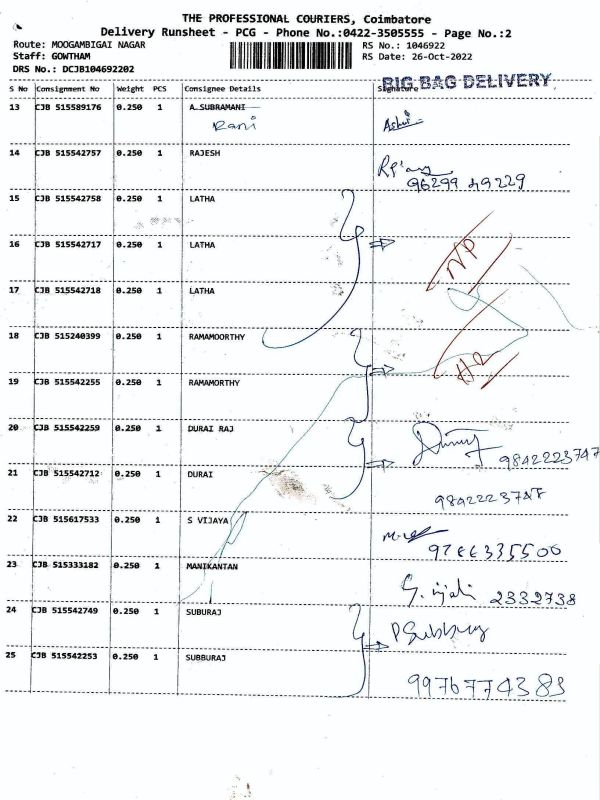 THE PROFESSIONAL COURIERS, Coimbatore
Delivery Runsheet - PCG - Phone No.:0422-3505555 - Page No.:2
Route: MOOGAMBIGAI NAGAR RS No.: 1046922
Staff: GOWTHAM RS Date: 26-Oct-2022
DRS No.: DCJB104692202
BIG BAG DELIVERY
S No Consignment No Weight PCS Consignee Details Signature
13 CJB 515589176 0.250 1 A SUBRAMANI
Rani
14 CJB 515542757 0.250 1 RAJESH
96299 49229
15 CJB 515542758 0.250 1 LATHA
16 CJB 515542717 0.250 1 LATHA
NP
17 CJB 515542718 0.250 1 LATHA
18 CJB 515240399 0.250 1 RAMAMOORTHY
19 CJB 515542255 0.250 1 RAMAMORTHY
20 CJB 515542259 0.250 1 DURAI RAJ
9842223747
21 CJB 515542712 0.250 1 DURAI
22 CJB 515617533 0.250 1 S VIJAYA
23 CJB 515333182 0.250 1 MANIKANTAN
2332738
24 CJB 515542749 0.250 1 SUBURAJ
25 CJB 515542253 0.250 1 SUBBURAJ